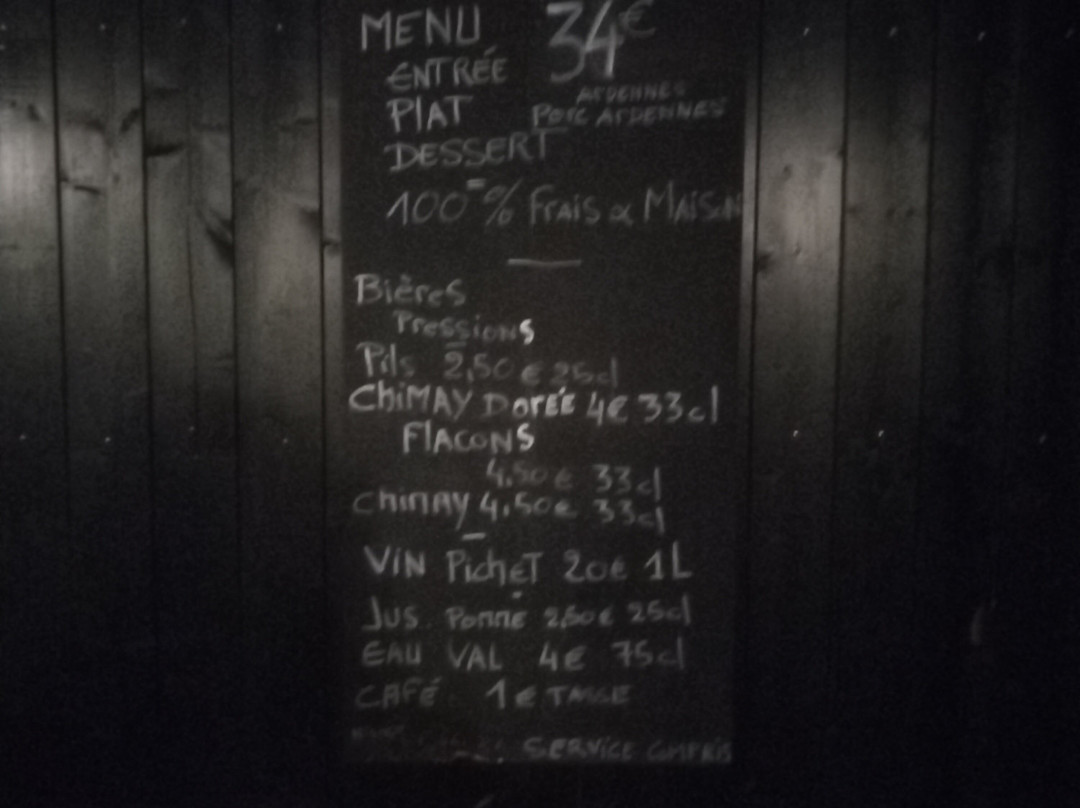 MENU 34€
ENTRÉE
ARDENNES
PLAT Porc ARDENNES
DESSERT
100% Frais & MAISON
Bières
Pressions
Pils 2,50 € 25cl
CHIMAY DORÉE 4€ 33cl
FLACONS
4,50€ 33cl
CHIMAY 4,50€ 33cl
VIN PICHET 20€ 1L
JUS POMME 2,50€ 25cl
EAU VAL 4€ 75cl
CAFÉ 1€ TASSE
SERVICE COMPRIS